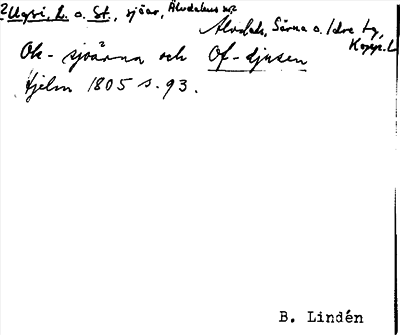 ²Ugsi, L. o. St., sjöar, Älvdalens sn
Älvdals, Särna o. Idre tg,
Kopp. l.
Ok- sjoarna och Of-djusen
Hjelm 1805 s. 93.
B. Lindén